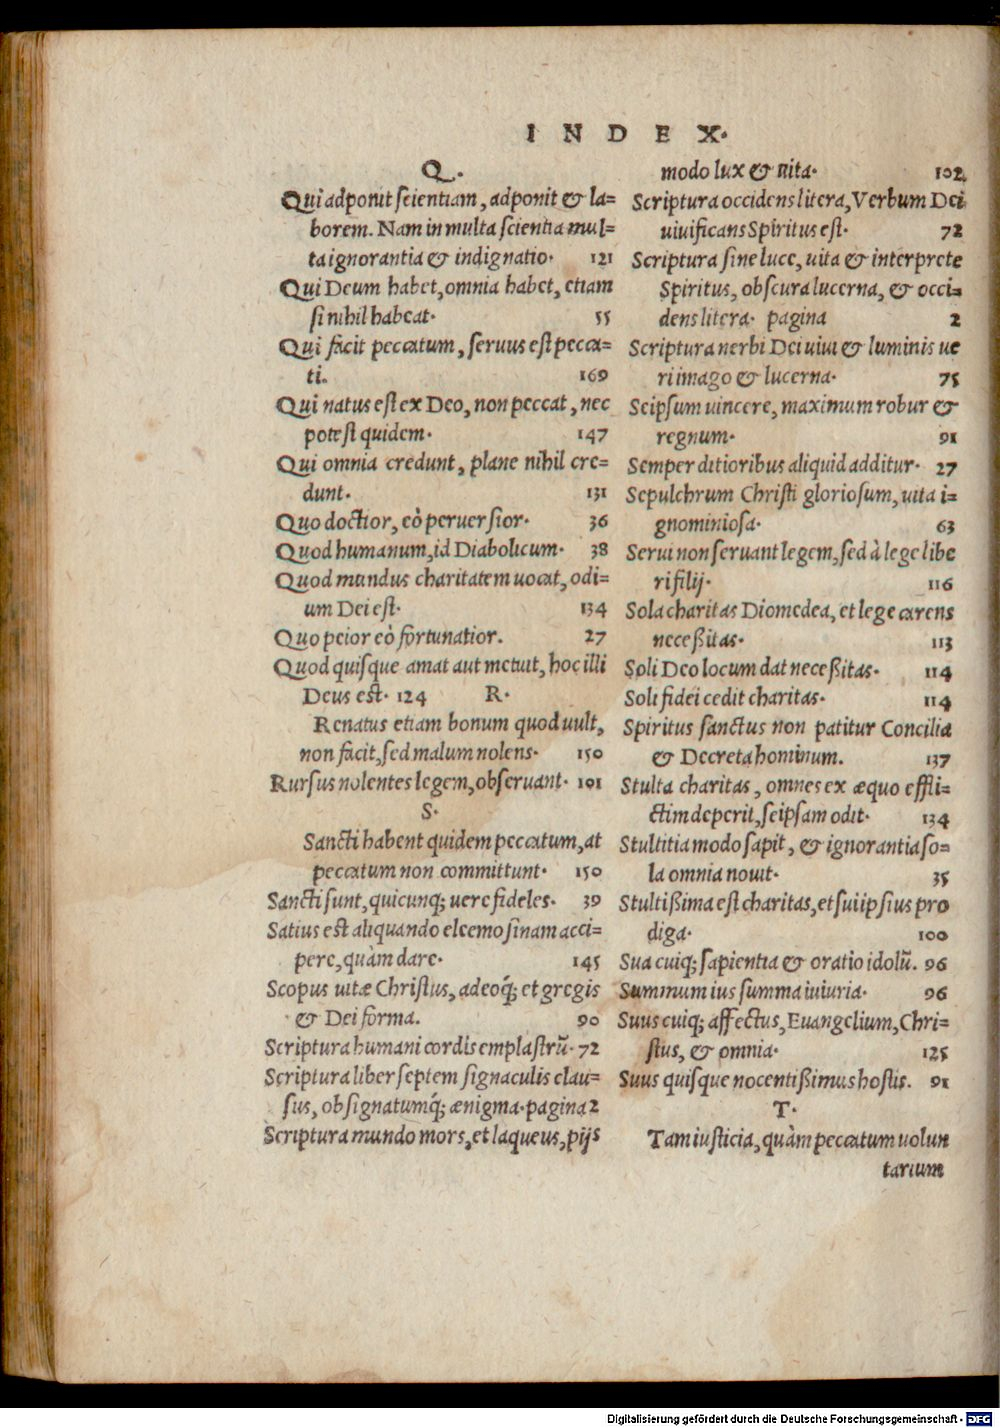 INDEX.
Q.
Qui adponit scientiam, adponit & la=
borem. Nam in multa scientia mul=
ta ignorantia & indignatio. 121
Qui Deum habet, omnia habet, etiam
si nihil habeat. 55
Qui facit peccatum, seruus est pecca=
ti. 169
Qui natus est ex Deo, non peccat, nec
potest quidem. 147
Qui omnia credunt, plane nihil cre=
dunt. 131
Quo doctior, eò peruersior. 36
Quod humanum, id Diabolicum. 38
Quod mundus charitatem uocat, odi=
um Dei est. 134
Quo peior eò fortunatior. 27
Quod quisque amat aut metuit, hoc illi
Deus est. 124 R.
Renatus etiam bonum quod uult,
non facit, sed malum nolens. 150
Rursus nolentes legem, obseruant. 101
S.
Sancti habent quidem peccatum, at
peccatum non committunt. 150
Sancti sunt, quicunq; uere fideles. 39
Satius est aliquando eleemosinam acci=
pere, quàm dare. 145
Scopus uitæ Christus, adeoq́; et gregis
& Dei forma. 90
Scriptura humani cordis emplastrũ. 72
Scriptura liber septem signaculis clau=
sus, obsignatumq́; ænigma. pagina 2
Scriptura mundo mors, et laqueus, pijs
modo lux & uita. 102
Scriptura occidens litera, Verbum Dei
uiuificans Spiritus est. 72
Scriptura sine luce, uita & interprete
Spiritus, obscura lucerna, & occi=
dens litera. pagina 2
Scriptura uerbi Dei uiui & luminis ue
ri imago & lucerna. 75
Seipsum uincere, maximum robur &
regnum. 91
Semper ditioribus aliquid additur. 27
Sepulchrum Christi gloriosum, uita i=
gnominiosa. 63
Serui non seruant legem, sed à lege libe
ri filij. 116
Sola charitas Diomedea, et lege carens
neceßitas. 113
Soli Deo locum dat neceßitas. 114
Soli fidei cedit charitas. 114
Spiritus sanctus non patitur Concilia
& Decreta hominum. 137
Stulta charitas, omnes ex æquo effli=
ctim deperit, seipsam odit. 134
Stultitia modo sapit, & ignorantia so=
la omnia nouit. 35
Stultißima est charitas, et sui ipsius pro
diga. 100
Sua cuiq; sapientia & oratio idolũ. 96
Summum ius summa iniuria. 96
Suus cuiq; affectus, Euangelium, Chri=
stus, & omnia. 125
Suus quisque nocentißimus hostis. 91
T.
Tam iusticia, quàm peccatum uolun
tarium
Digitalisierung gefördert durch die Deutsche Forschungsgemeinschaft - DFG